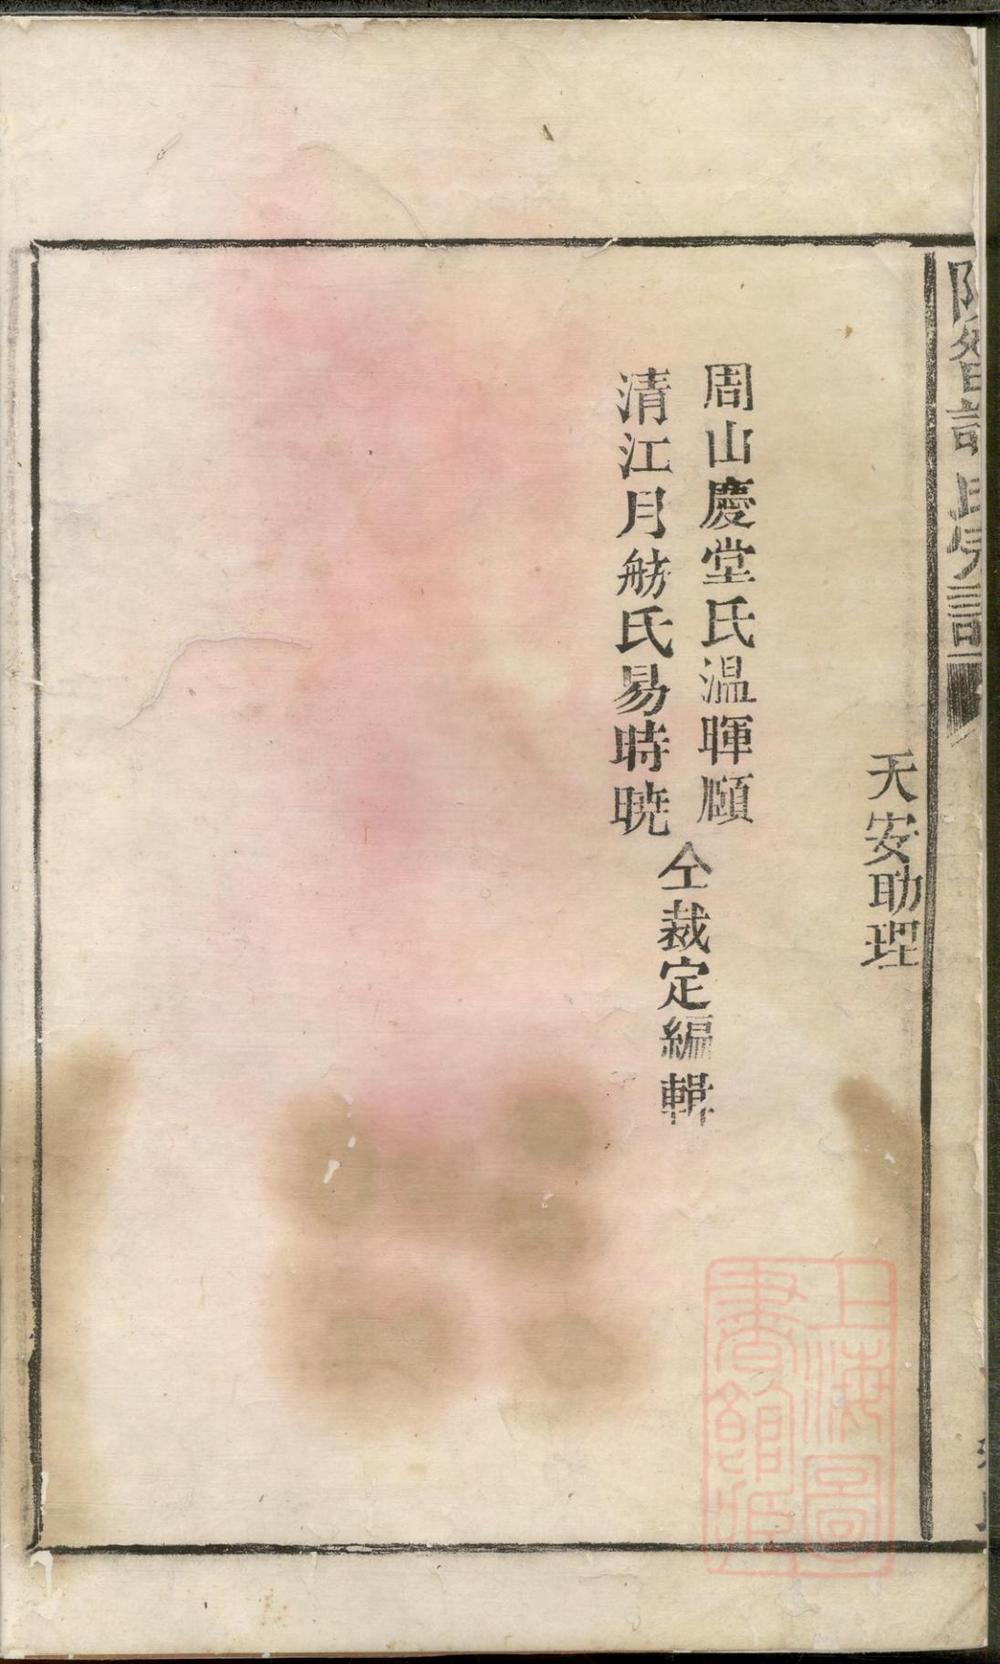 天安助理
周山慶堂氏温暉願
清江月舫氏易時暁
仝裁定編輯
上海圖
書館藏